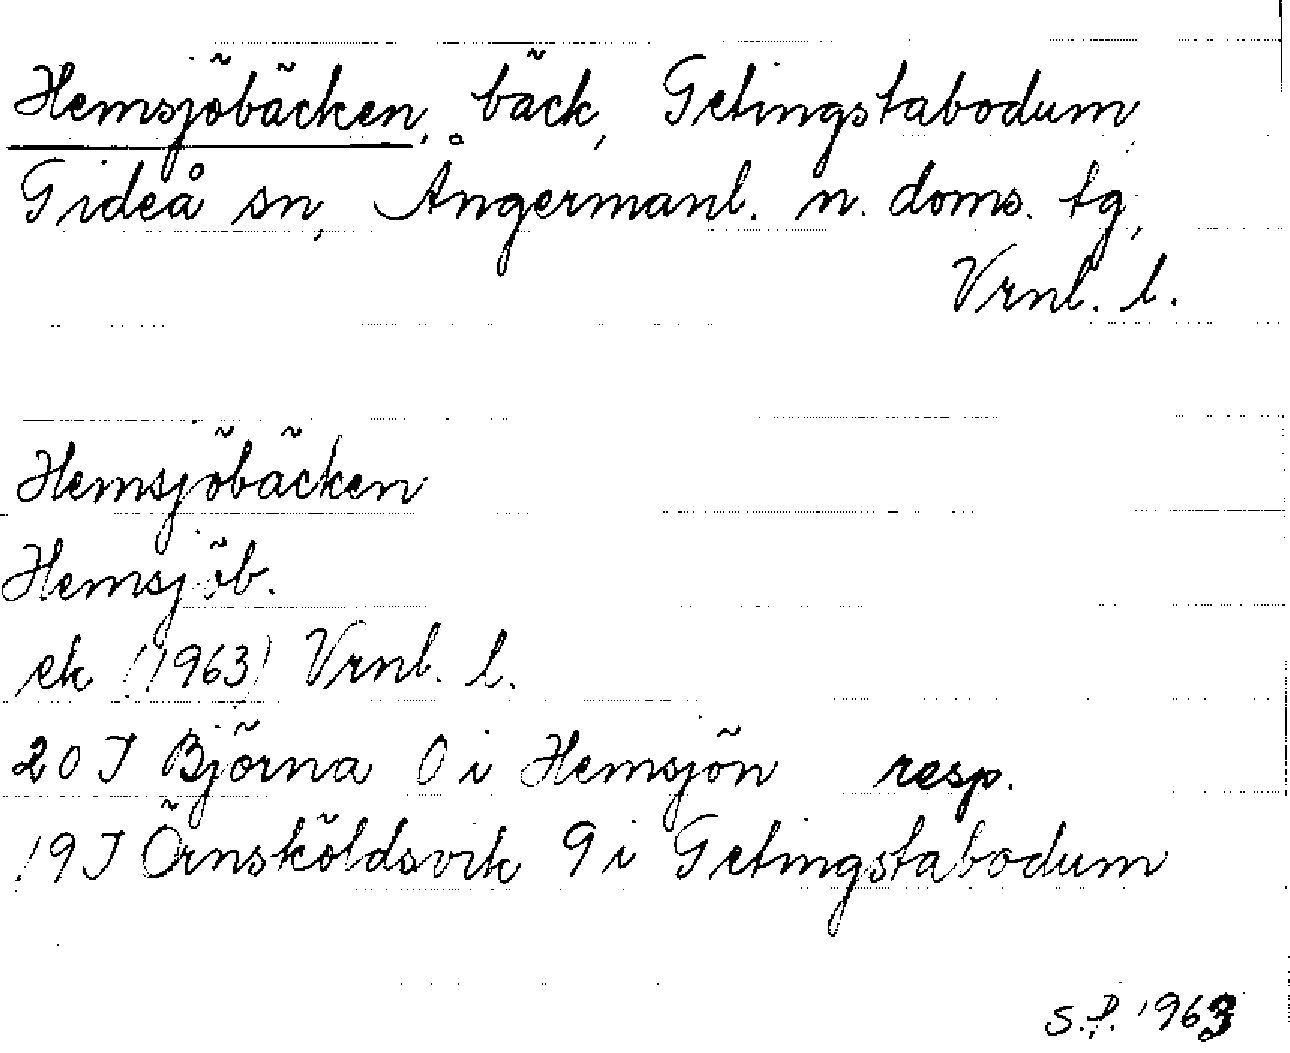 Hemsjöbäcken, bäck, Getingstabodum,
Gideå sn, Ångermanl. n. doms. tg,
Vrnl. l.
Hemsjöbäcken
Hemsjöb.
ek (1963) Vrnl. l.
20 J Björna 0 i Hemsjön resp.
19 J Örnsköldsvik 9 i Getingstabodum
S.P. 1963